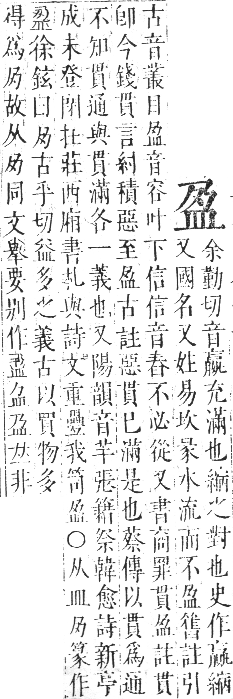 盈
余勤切音嬴充滿也縮之對也史作嬴縮
又國名又姓易坎彖水流而不盈舊註引
古音叢目盈音容叶下信信音春不必從又書商罪貫盈註貫
卽今錢貫言紂積惡至盈古註惡貫已滿是也蔡傳以貫爲通
不知貫通與貫滿各一義也又陽韻音羊張籍祭韓愈詩新亭
成未登閉在莊西廂書札與詩文重疊我笥盈○从皿夃篆作
徐鉉曰夃古乎切益多之義古以買物多
得爲夃故从夃同文舉要別作非